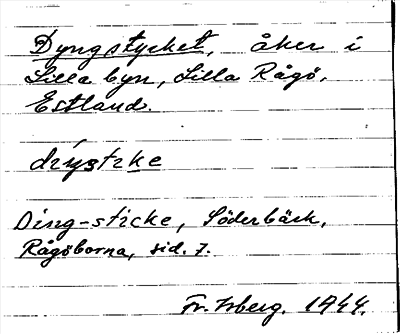 Dyngstycket, åker i
Lilla byn, Lilla Rågö,
Estland.
Ding-sticke, Söderbäck,
Rågöborna, sid. 7.
Fr. Isberg. 1944.